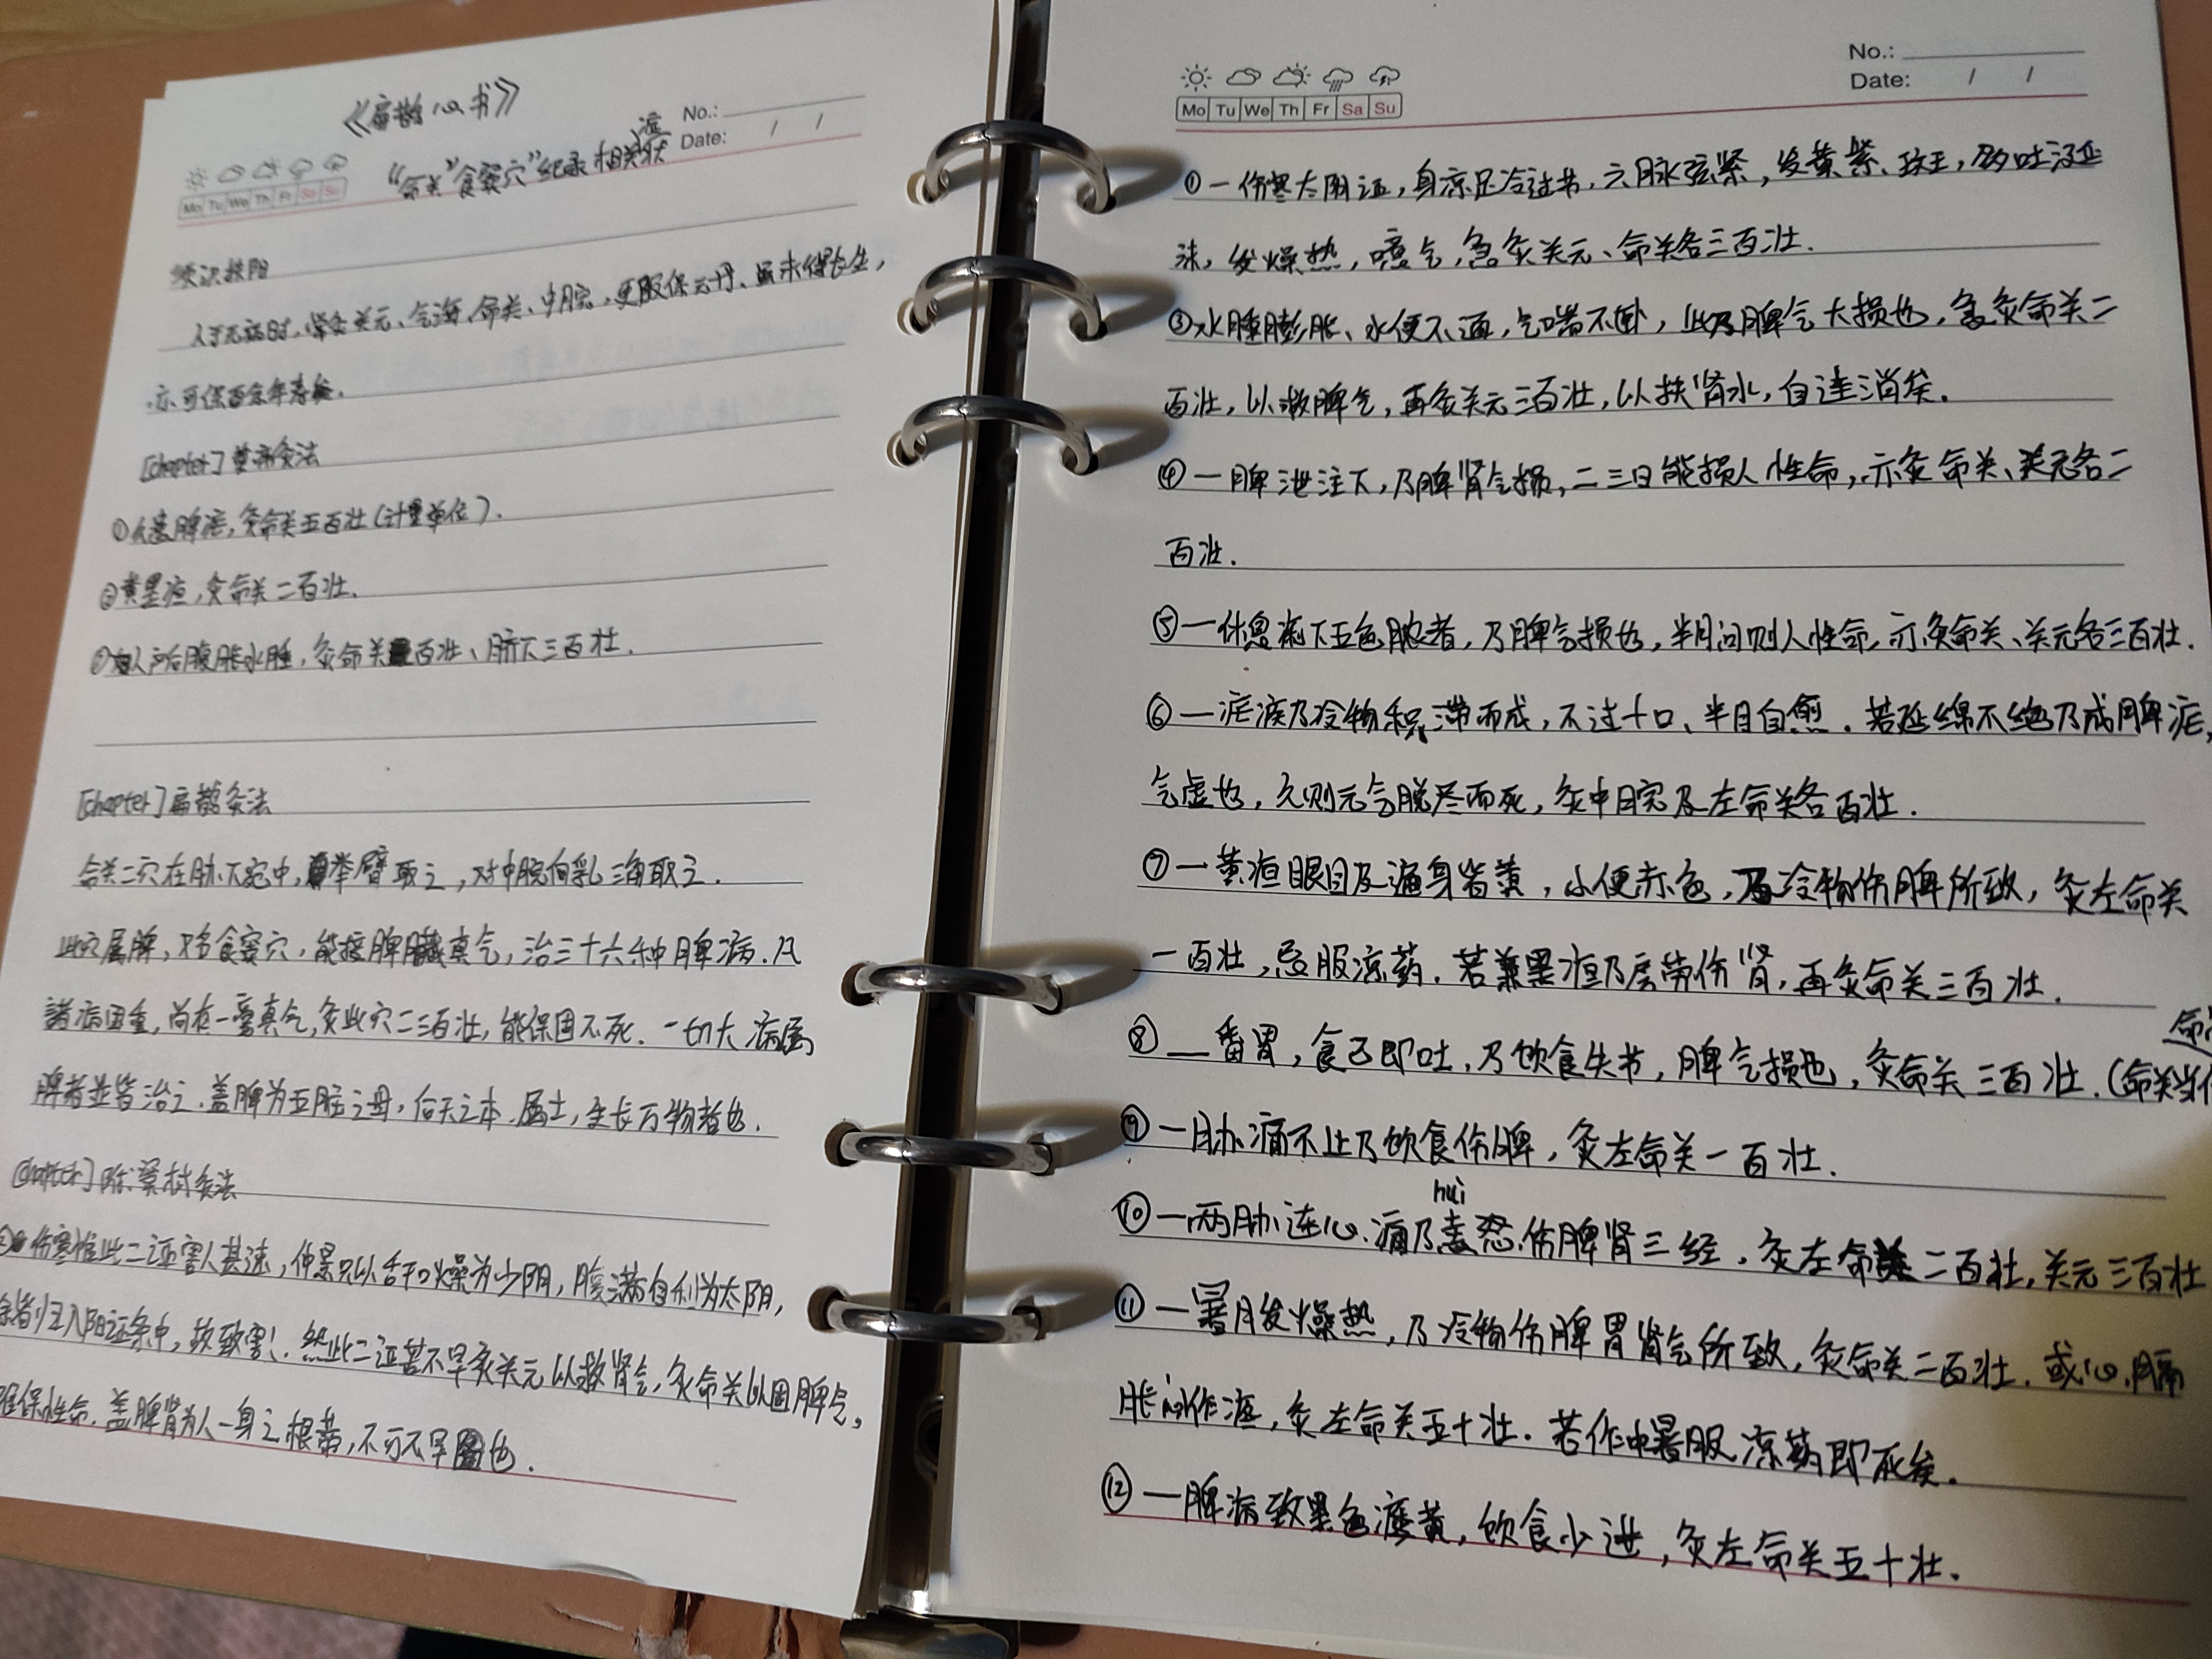 《扁鹊心书》
"命关""食窦穴"纪录相关症状
No.:
Date: / /
Mo Tu We Th Fr Sa Su
须识扶阳
人于无病时,常灸关元、气海、命关、中脘,更服保元丹、虽未得长生,
亦可保百余年寿矣.
[chapter]黄帝灸法
①久患脾疟,灸命关五百壮(计量单位).
②黄黑疸,灸命关二百壮.
妇人产后腹胀水肿,灸命关百壮、脐下三百壮.
[chapter]扁鹊灸法
命关二穴在胁下宛中,举臂取之,对中脘向乳三角取之.
此穴属脾,又名食窦穴,能接脾臟真气,治三十六种脾病.凡
諸病困重,尚有一毫真气,灸此穴二三百壮,能保固不死.一切大病属
脾者並皆治之.盖脾为五脏之母,后天之本.属土,生长万物者也.
[chapter]灸法
伤寒惟此二证害人甚速,仲景只以舌干口燥为少阴,腹满自利为太阴,
余皆归入阳证条中,故致害!.然此二证若不早灸关元以救肾气,灸命关以固脾气,
难保性命.盖脾肾为人一身之根蒂,不可不早圖也.
No.:
Date: / /
Mo Tu We Th Fr Sa Su
①一伤寒太阴证,身凉足冷过节,六脉弦紧,发黄紫、斑,多吐涎
沫,发燥热,噫气,急灸关元、命关各三百壮.
③水肿膨胀、水便不通,气喘不卧,此乃脾气大损也,急灸命关二
百壮,以救脾气,再灸关元三百壮,以扶肾水,自运消矣.
④一脾泄注下,乃脾肾气损,二三日能损人性命,亦灸命关、关元各二
百壮.
⑤一休息痢下五色脓者,乃脾气损也,半月间则人性命,亦灸命关、关元各三百壮.
⑥一疟疾乃冷物积滞而成,不过十日、半月自愈.若延绵不绝乃成脾疟,
气虚也,久则元气脱尽而死,灸中脘及左命关各百壮.
⑦一黄疸眼目及遍身皆黄,小便赤色,乃冷物伤脾所致,灸左命关
一百壮,忌服凉药.若兼黑疸乃房劳伤肾,再灸命关三百壮.
⑧一番胃,食已即吐,乃饮食失节,脾气损也,灸命关三百壮.(命关
⑨一胁痛不止乃饮食伤脾,灸左命关一百壮.
hui
⑩一两胁连心.痛乃恚怒.伤脾肾三经,灸左命关二百壮,关元三百壮
⑪一暑月发燥热,乃冷物伤脾胃肾气所致,灸命关二百壮.或心膈
胀闷作疼,灸左命关五十壮.若作中暑服凉药即死矣.
⑫一脾病致黑色痿黄,饮食少进,灸左命关五十壮.